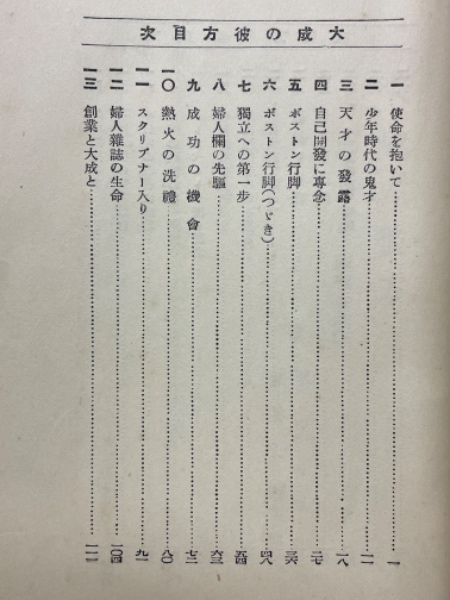 大成の彼方目次
一 使命を抱いて 一
二 少年時代の鬼才 一一
三 天才の發露 一八
四 自己開發に專念 二七
五 ボストン行脚 三六
六 ボストン行脚(つゞき) 四八
七 獨立への第一步 五四
八 婦人欄の先驅 六三
九 成功の機會 七三
一〇 熱火の洗禮 八〇
一一 スクリブナー入り 九一
一二 婦人雜誌の生命 一〇四
一三 創業と大成と 一一一